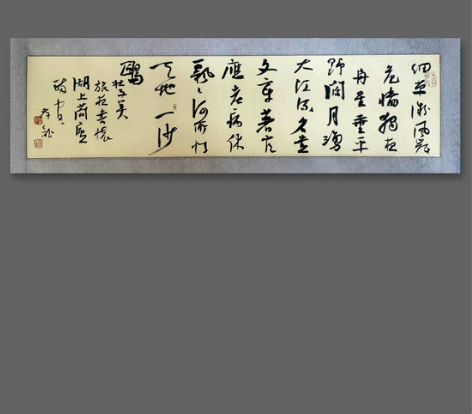 細草微風岸
危檣獨夜
舟星垂平
野闊月湧
大江流名豈
文章著官
應老病休
飄〻何所似
天地一沙
鷗
杜子美
旅夜書懷
湖上